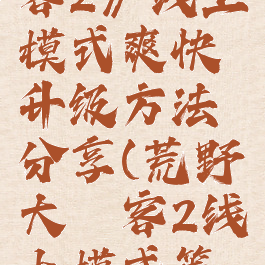 客2》线上
模式爽快
升级方法
分享(荒野
大 客2线
上模式等